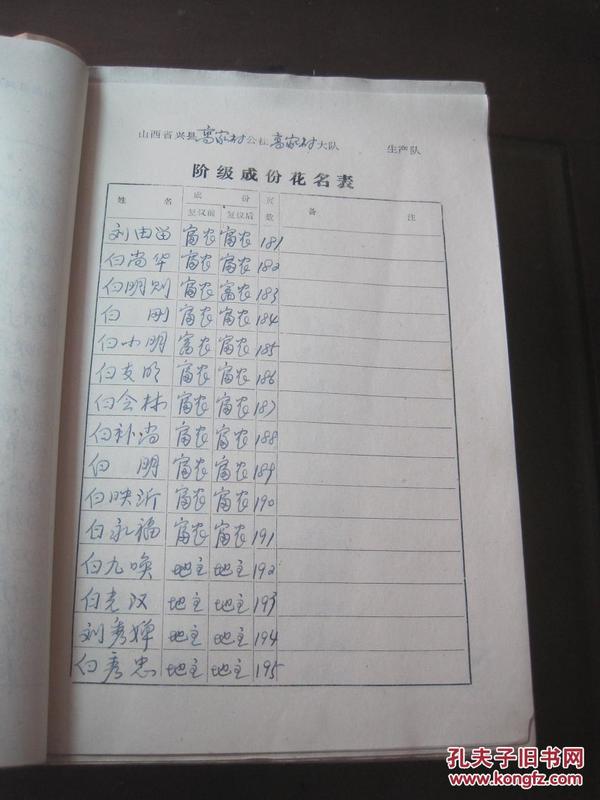 山西省兴县高家村公社高家村大队 生产队
阶级成份花名表
姓 名 成 份 页数 备 注
复议前 复议后
刘由留 富农 富农 181
白尚华 富农 富农 182
白明则 富农 富农 183
白 刚 富农 富农 184
白小明 富农 富农 185
白支明 富农 富农 186
白会林 富农 富农 187
白补尚 富农 富农 188
白 明 富农 富农 189
白映沂 富农 富农 190
白永福 富农 富农 191
白九唤 地主 地主 192
白老汉 地主 地主 193
刘秀婵 地主 地主 194
白彦忠 地主 地主 195
孔夫子旧书网
www.kongfz.com